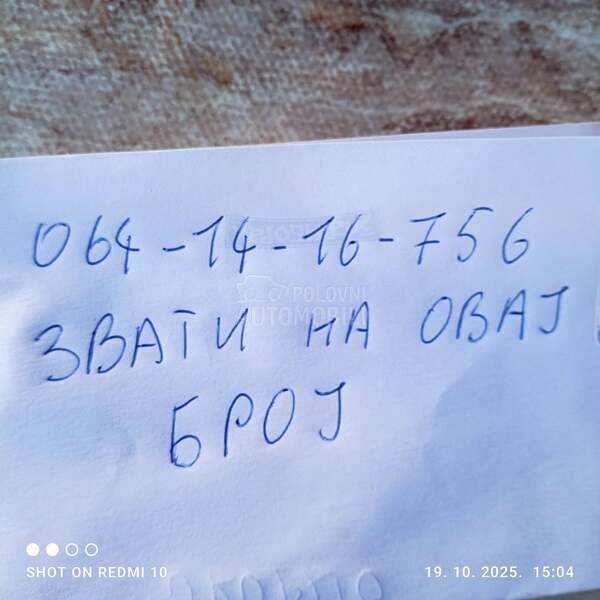 064-14-16-756
ЗВАТИ НА ОВАЈ
БРОЈ
POLOVNI
AUTOMOBILI
SHOT ON REDMI 10
19. 10. 2025. 15:04